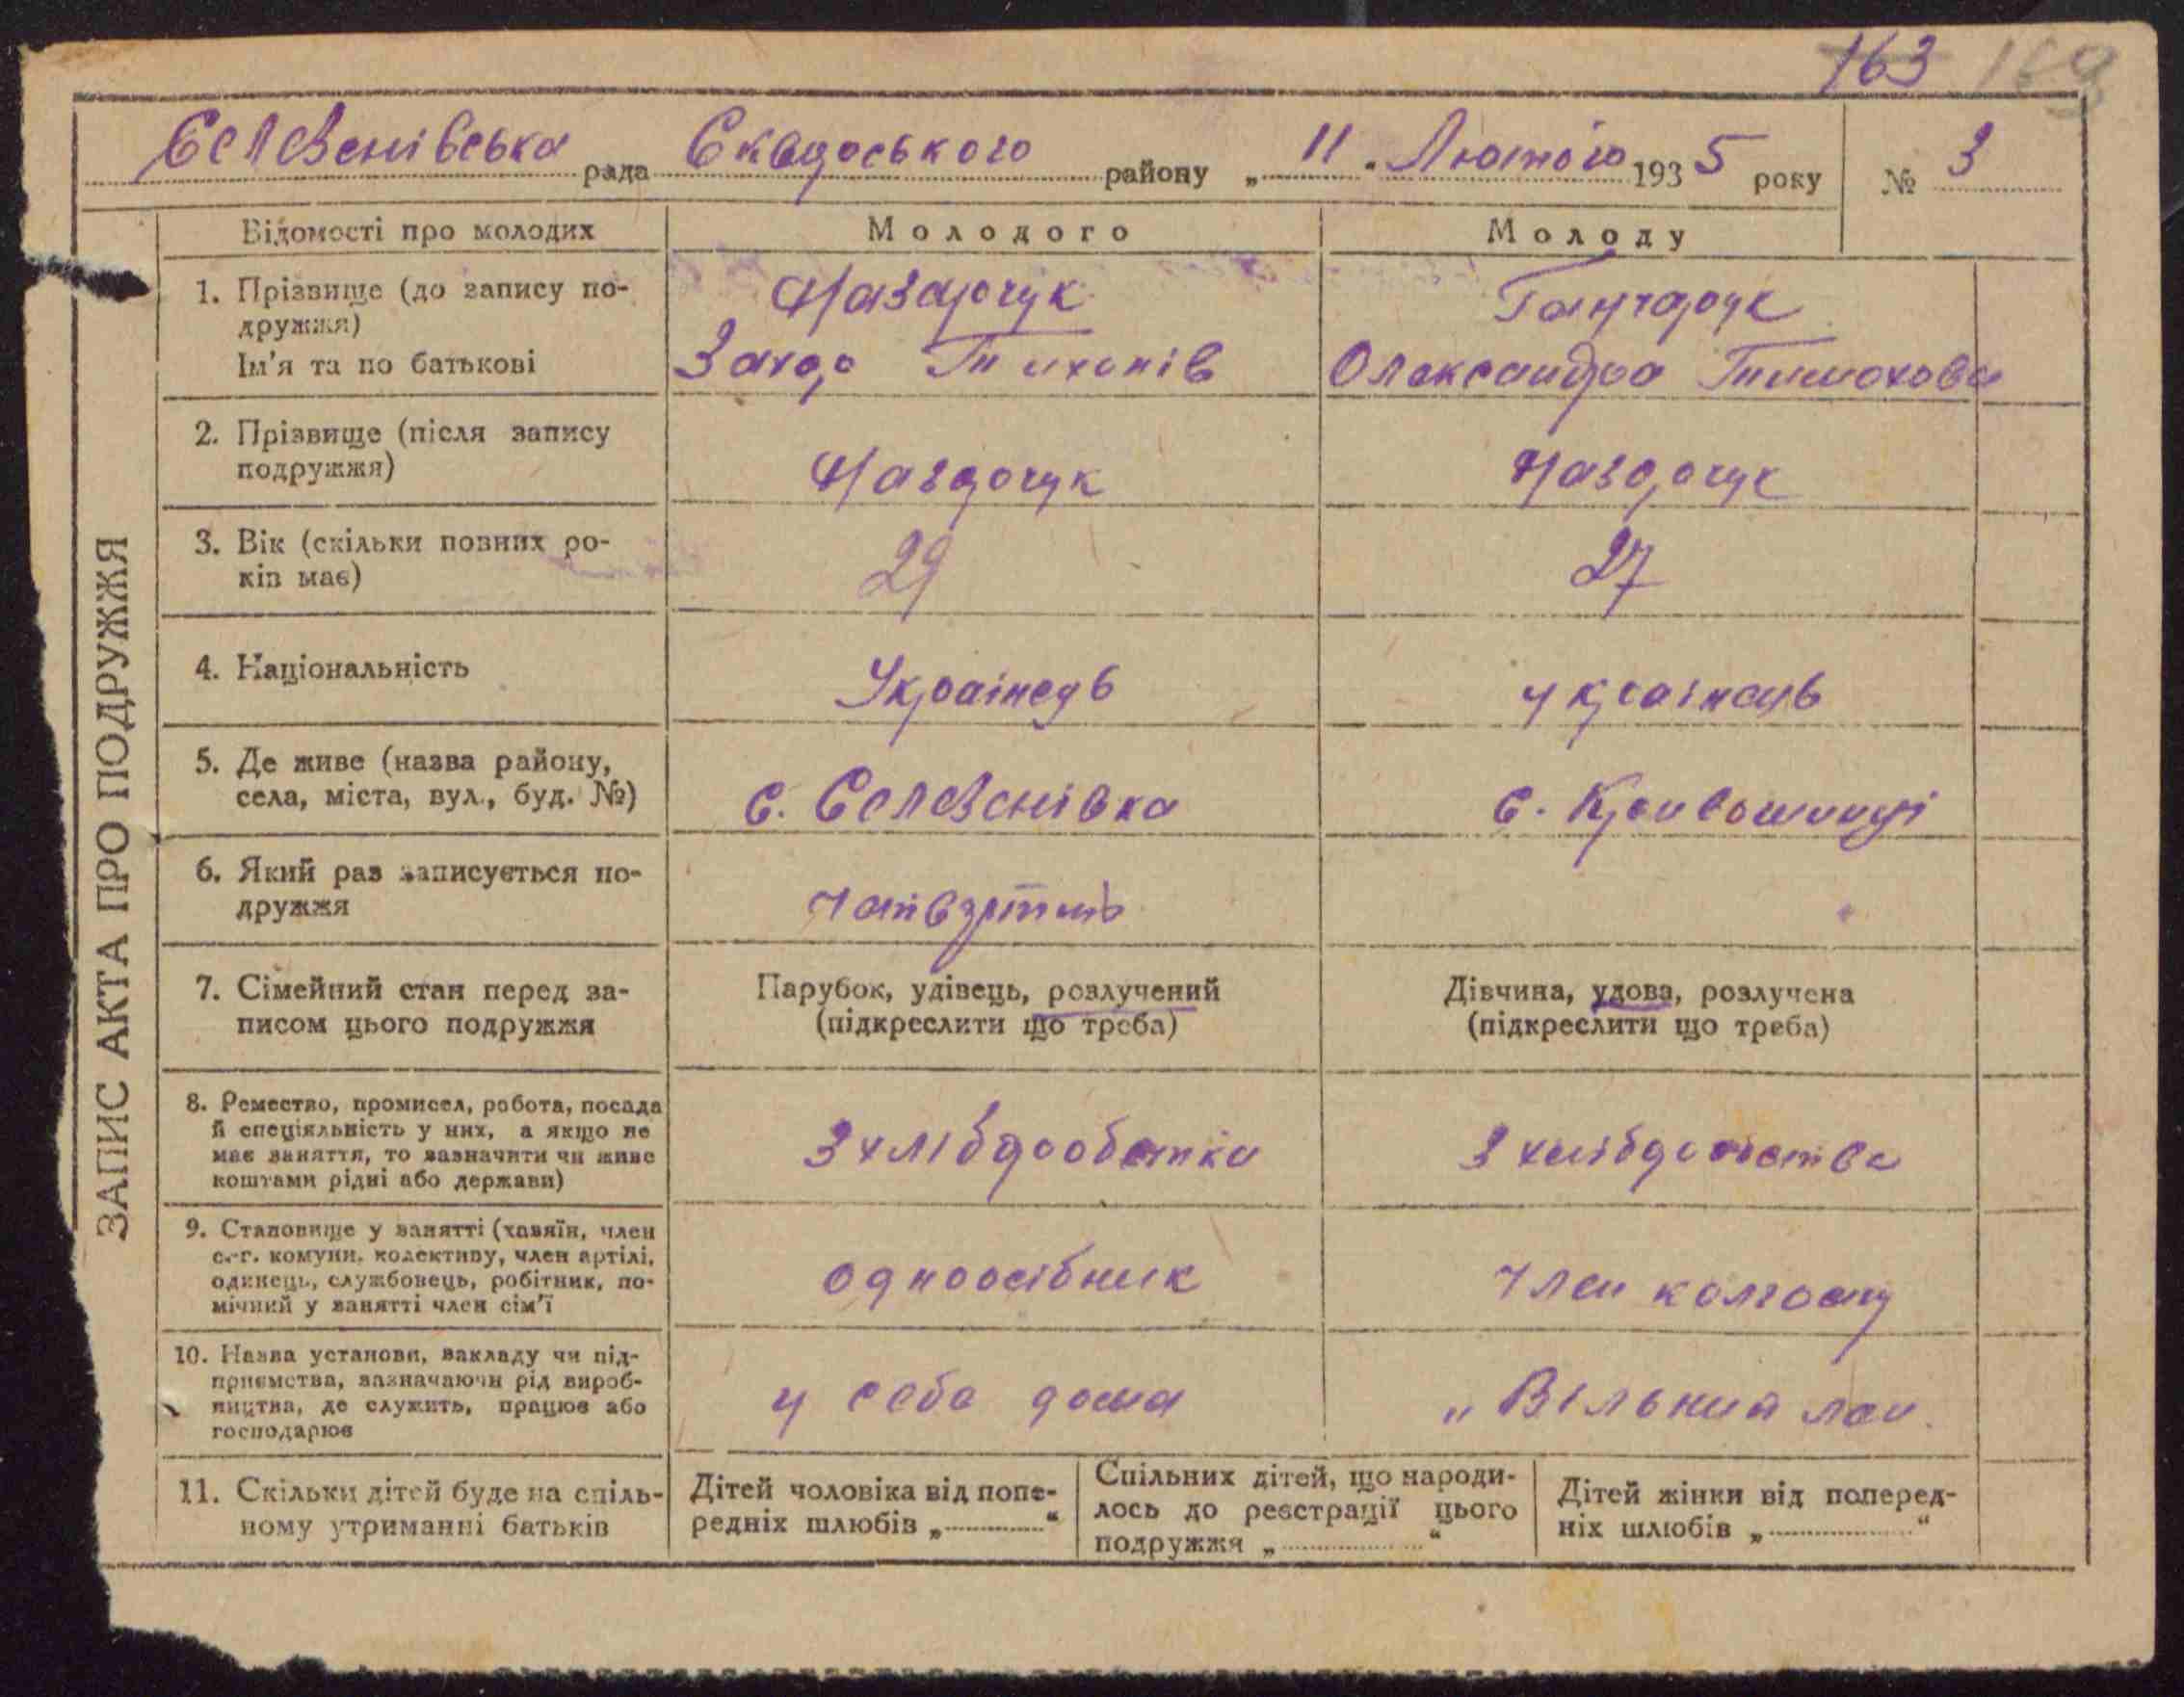 163 169
Селезенівська рада Сквирського району „ 11 " Лютого 1935 року № 3
Відомості про молодих Молодого Молоду
1. Прізвище (до запису по-
дружжя)
Назарчук Ганчарук
Ім'я та по батькові Захар Тихонів Олександра Тимохова
2. Прізвище (після запису
подружжя) Назарчук Назарчук
3. Вік (скільки повних ро-
ків має) 29 27
4. Національність Українець українець
5. Де живе (назва району,
села, міста, вул., буд. №) с. Селезенівка с. Кривошиинці
6. Який раз записується по-
дружжя
7. Сімейний стан перед за-
писом цього подружжя
Парубок, удівець, розлучений
(підкреслити що треба)
Дівчина, удова, розлучена
(підкреслити що треба)
8. Ремество, промисел, робота, посада
й спеціяльність у них, а якщо не
має заняття, то зазначити чи живе
коштами рідні або держави)
З хліб З хліб
9. Становище у занятті (хазяїн, член
с.-г. комуни, колективу, член артілі,
одинець, службовець, робітник, по-
мічний у занятті член сім'ї
одноосібник Член колгоспу
10. Назва установи, закладу чи під-
приємства, зазначаючи рід вироб-
ництва, де служить, працює або
господарює
у себе дома „ Вільний лан
11. Скільки дітей буде на спіль-
ному утриманні батьків
Дітей чоловіка від попе-
редніх шлюбів „ "
Спільних дітей, що народи-
лось до реєстрації цього
подружжя „ "
Дітей жінки від поперед-
ніх шлюбів „ "
ЗАПИС АКТА ПРО ПОДРУЖЖЯ